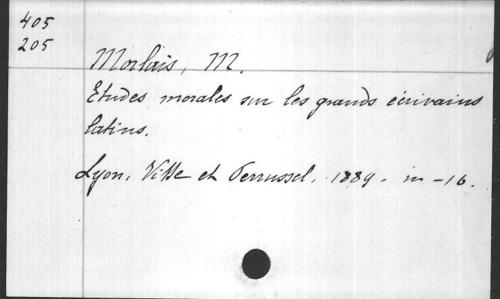 405
205
Morlais, M.
Etudes morales sur les grands écrivains
latins.
Lyon, Vitte et Perrussel, 1889. in-16.